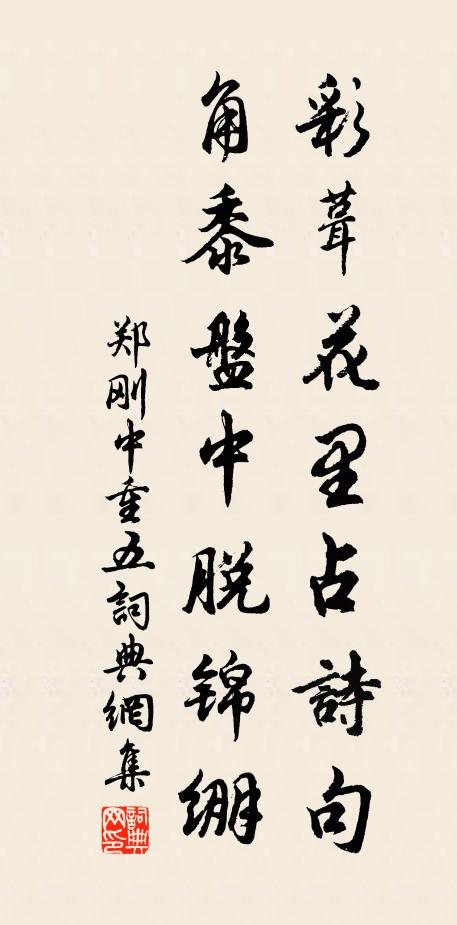 彩葺花里占詩句
角黍盤中脱锦绷
郑刚中重五詞典網集
詞典网印